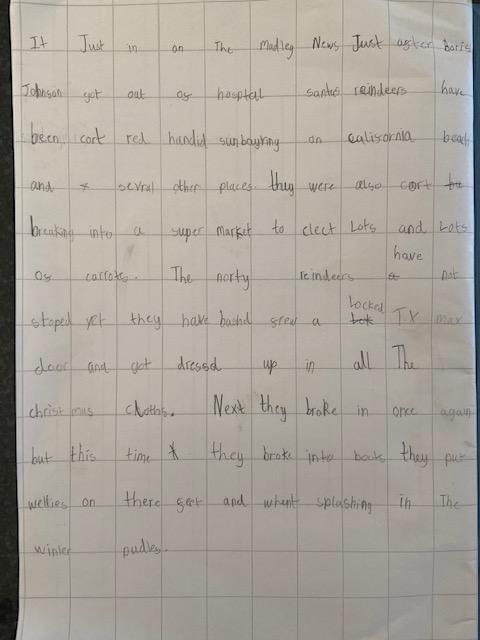 It Just in on The Madley News Just after boris
Johnson got out of hospital santas reindeers have
been cort red handid sunbayking on california beach
and sevral other places. they were also cort
breaking into a super market to clect Lots and Lots
have
of carrots. The norty reindeers not
locked
stoped yet they have bashd frew a T.K max
door and got dressed up in all The
christmas cloths. Next they broke in once again
but this time they broke into boots they put
wellies on there feet and whent splashing in The
winter pudles.